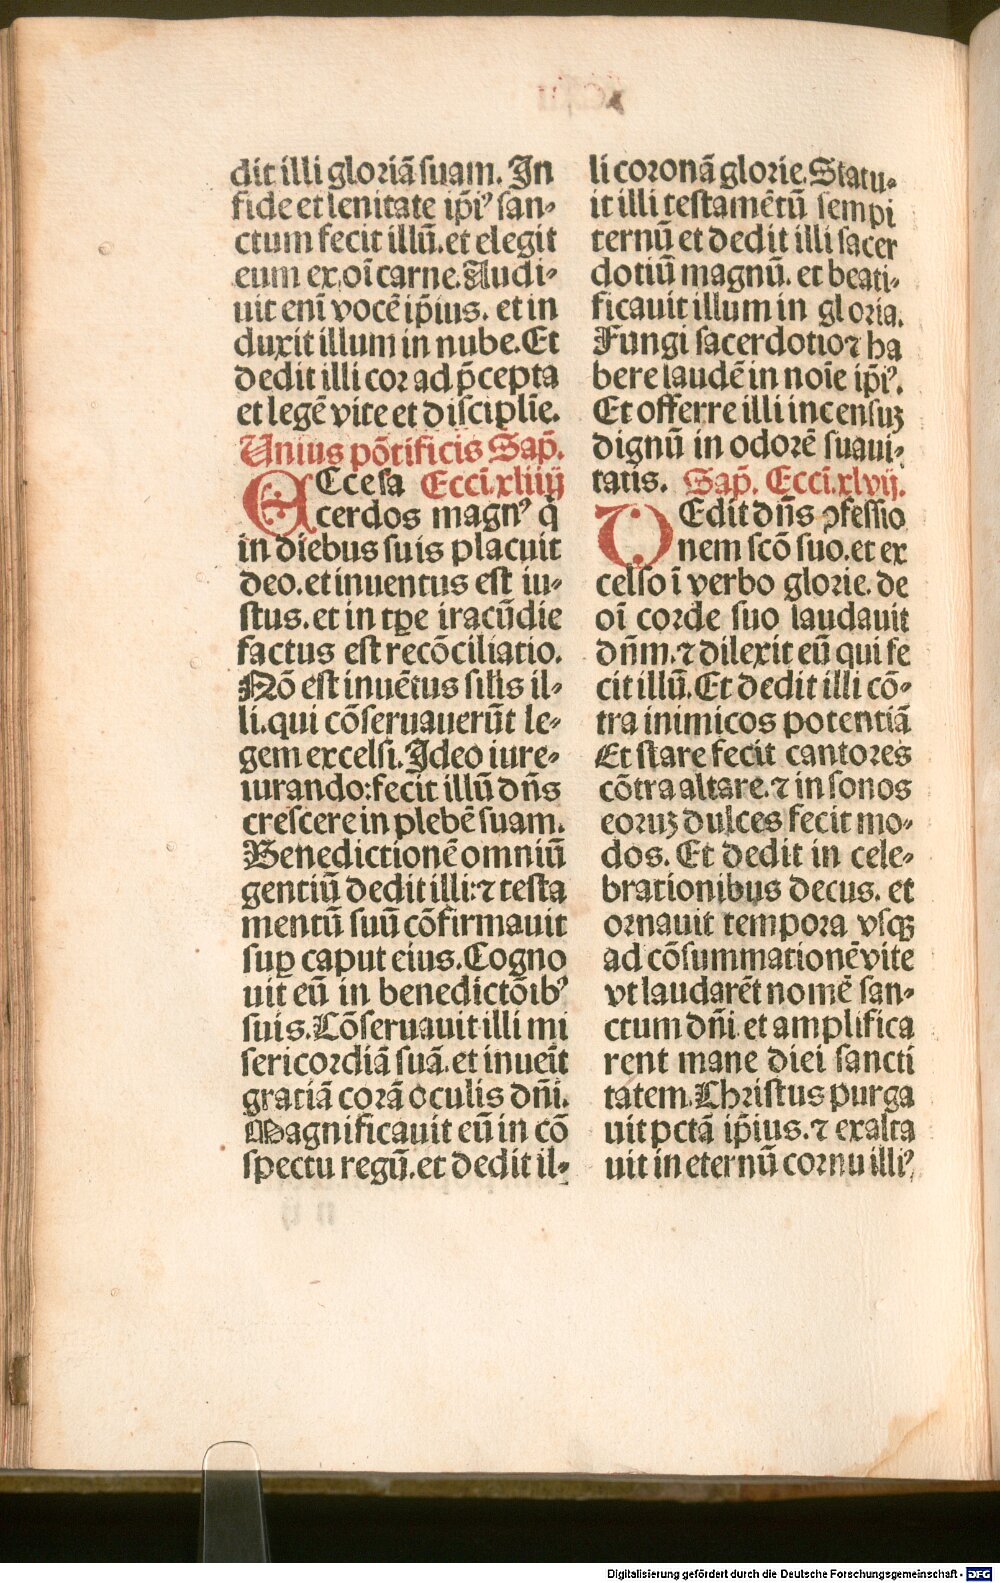 dit illi gloriā suam. In
fide et lenitate ip̄i⁹ san-
ctum fecit illū. et elegit
eum ex oī carne. Audi-
uit enī vocē ip̄ius. et in
duxit illum in nube. Et
dedit illi cor ad p̄cepta
et legē vite et disciplīe.
Unius pōtificis Sap̄.
ECce sa Ecci. xliiij
cerdos magn⁹ q̄
in diebus suis placuit
deo. et inuentus est iu-
stus. et in tꝑe iracūdie
factus est recōciliatio.
Nō est inuētus silis il-
li. qui cōseruauerūt le-
gem excelsi. Ideo iure-
iurando: fecit illū dn̄s
crescere in plebē suam.
Benedictionē omniū
gentiū dedit illi: ⁊ testa
mentū suū cōfirmauit
suꝑ caput eius. Cogno
uit eū in benedictōib⁹
suis. Cōseruauit illi mi
sericordiā suā. et inuēit
gratiā corā oculis dn̄i.
Magnificauit eū in cō
spectu regū. et dedit il-
li coronā glorie. Statu-
it illi testamētū sempi
ternū et dedit illi sacer
dotiū magnū. et beati-
ficauit illum in gloria.
Fungi sacerdotio ⁊ ha
bere laudē in noīe ip̄i⁹.
Et offerre illi incensuꝫ
dignū in odorē suaui-
tatis. Sap̄. Ecci. xlvij.
DEdit dn̄s ꝯfessio
nem scō suo. et ex
celso ī verbo glorie. de
oī corde suo laudauit
dn̄m. ⁊ dilexit eū qui fe
cit illū. Et dedit illi cō-
tra inimicos potentiā
Et stare fecit cantores
cōtra altare. ⁊ in sonos
eoruꝫ dulces fecit mo-
dos. Et dedit in cele-
brationibus decus. et
ornauit tempora vsqꝫ
ad cōsummationē vite
vt laudarēt nomē san-
ctum dn̄i. et amplifica
rent mane diei sancti
tatem. Christus purga
uit pctā ip̄ius. ⁊ exalta
uit in eternū cornu illi⁹
Digitalisierung gefördert durch die Deutsche Forschungsgemeinschaft - DFG